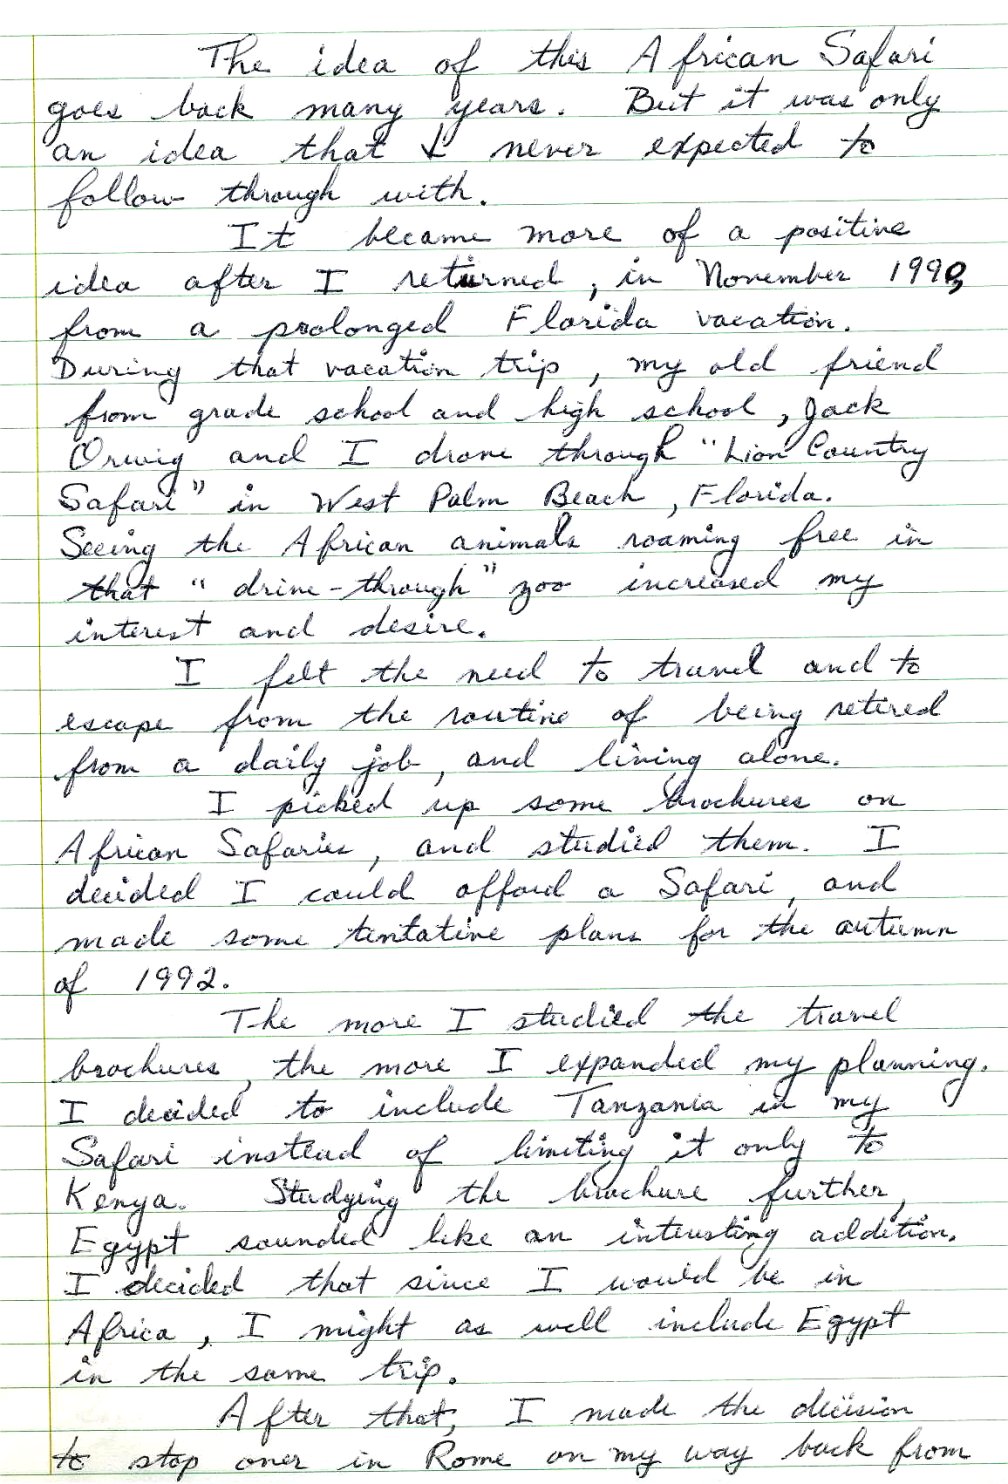 The idea of this African Safari
goes back many years. But it was only
an idea that I never expected to
follow through with.
It became more of a positive
idea after I returned, in November 1990,
from a prolonged Florida vacation.
During that vacation trip, my old friend
from grade school and high school, Jack
Orwig and I drove through "Lion Country
Safari" in West Palm Beach, Florida.
Seeing the African animals roaming free in
that "drive-through" zoo increased my
interest and desire.
I felt the need to travel and to
escape from the routine of being retired
from a daily job, and living alone.
I picked up some brochures on
African Safaries, and studied them. I
decided I could afford a Safari, and
made some tentative plans for the autumn
of 1992.
The more I studied the travel
brochures, the more I expanded my planning.
I decided to include Tanzania in my
Safari instead of limiting it only to
Kenya. Studying the brochure further,
Egypt sounded like an interesting addition.
I decided that since I would be in
Africa, I might as well include Egypt
in the same trip.
After that, I made the decision
to stop over in Rome on my way back from